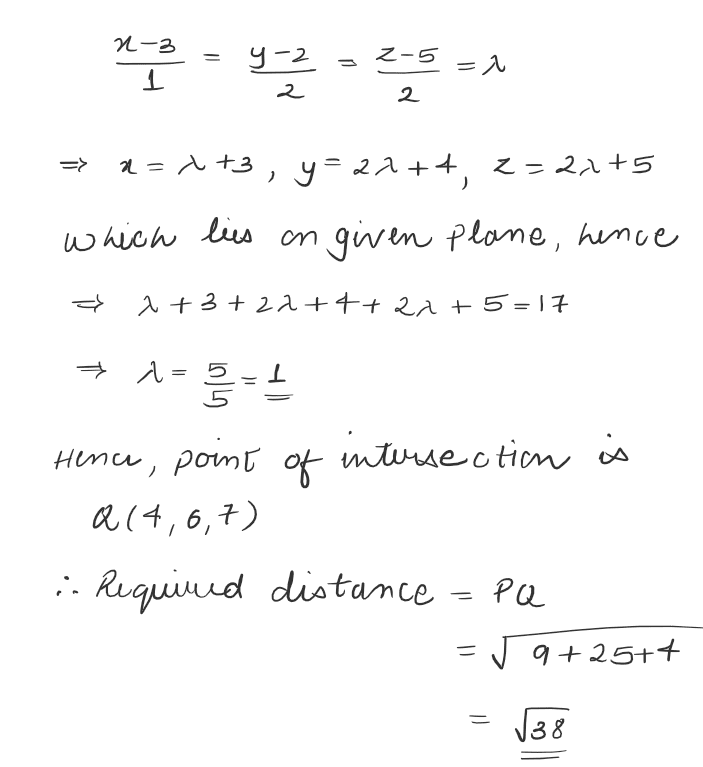 x-3/1 = y-2/2 = z-5/2 = λ
⇒ x = λ+3, y = 2λ+4, z = 2λ+5
which lies on given plane, hence
⇒ λ+3+2λ+4+2λ+5=17
⇒ λ = 5/5 = 1
Hence, point of intersection is
Q(4,6,7)
∴ Required distance = PQ
= √9+25+4
= √38